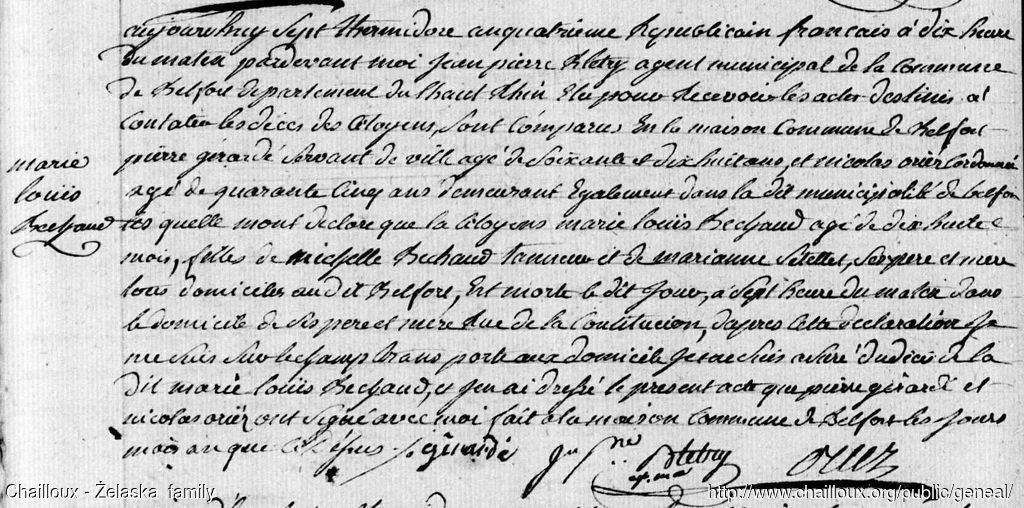 aujourdhuy sept thermidore anquatrieme Republicain français á dix heure
du maten pardevant moi jean pierre Kletry agent municipal de la Commune
de Belfort departement du haut Rhin Elu pour Recevoir les actes destinés a
Contater les déces des Citoyens, sont Comparus En la maison Commune de Belfort
pierre gerardé servant de ville agé de soixante et dixhuit ans, et nicolas oriéz Cordonnié
agé de quarante Cinq ans demeurant Egalement dans la dit municipalité de belfort
marie
louis
Bechaud
les quelle mont declare que la Citoyens marie louis Bechaud agé de dix huite
mois, filles de michelle Bechaud tanneur et de marianne , ses pere et mere
tous domicilés au dit Belfort, Est morte le dit Jour, á sept heure du maten dans
le domicile de ses pere et mére Rue de la Contitucion, dapres Cette declaration Je
me suis sur le champ trans porté aux domicile Je me suis assuré du déces de la
dit marie louis Bechaud, et Jen ai dressé le present acte que pierre gérardé et
nicolas oriéz ont signé avec moi fait a la maison Commune de Belfort les Jours
mois an que Cidésus p gérardé Jn pre Kletry ag. mal oriéz
Chailloux - Żelaska family
http://www.chailloux.org/public/geneal/